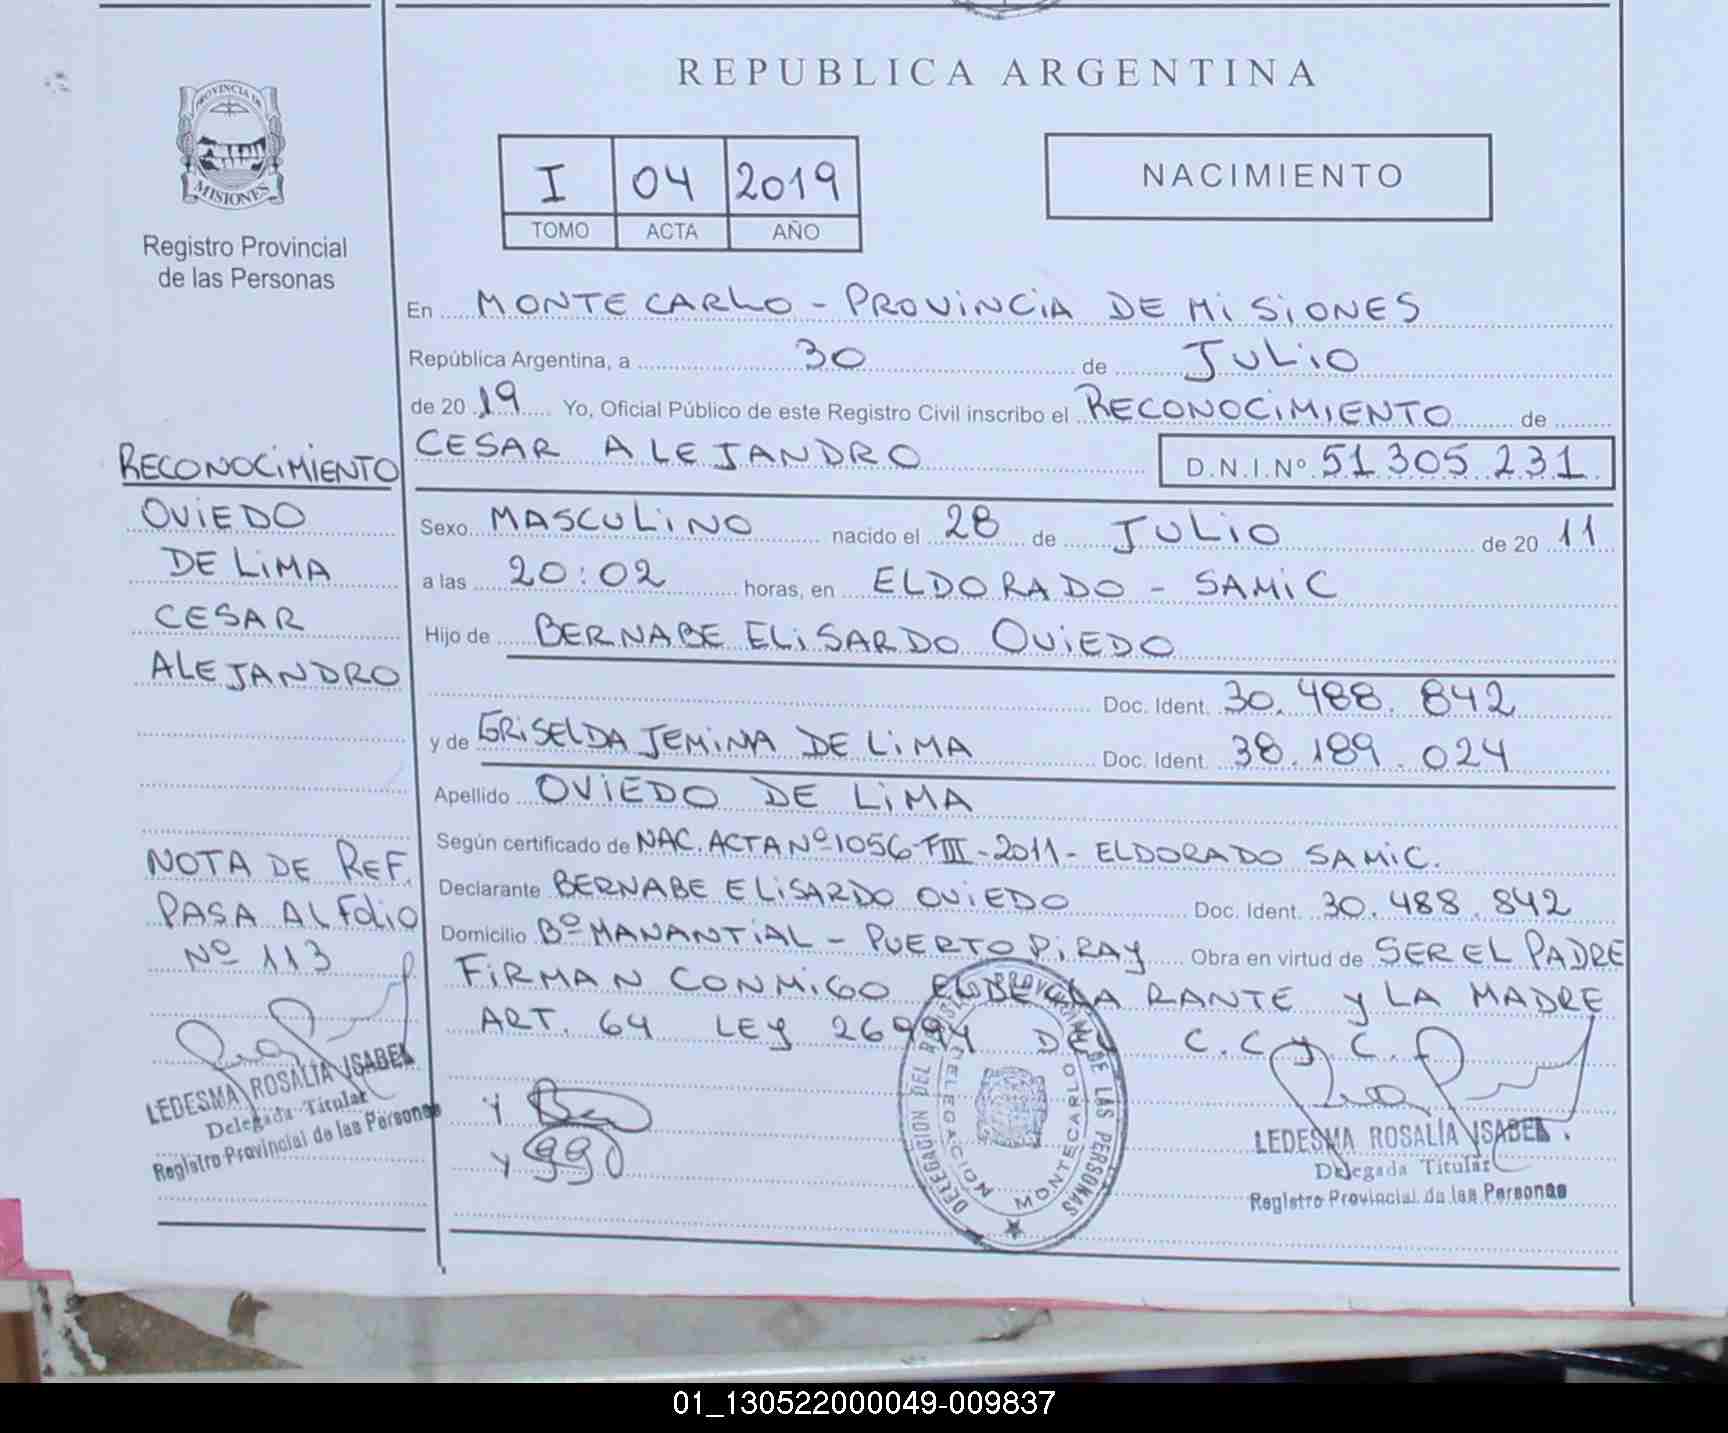 REPUBLICA ARGENTINA
PROVINCIA DE
MISIONES
Registro Provincial
de las Personas
I 04 2019
TOMO ACTA AÑO
NACIMIENTO
En MONTECARLO - PROVINCIA DE MISIONES
República Argentina, a 30 de JULIO
de 20 19 Yo, Oficial Público de este Registro Civil inscribo el RECONOCIMIENTO de
CESAR ALEJANDRO D.N.I.Nº 51.305.231
Sexo MASCULINO nacido el 28 de JULIO de 20 11
a las 20:02 horas, en ELDORADO - SAMIC
Hijo de BERNABE ELISARDO OVIEDO
Doc. Ident. 30.488.842
y de GRISELDA JEMINA DE LIMA Doc. Ident. 38.189.024
Apellido OVIEDO DE LIMA
Según certificado de NAC. ACTA Nº 1056-TIII-2011- ELDORADO SAMIC.
Declarante BERNABE ELISARDO OVIEDO Doc. Ident. 30.488.842
Domicilio Bº MANANTIAL - PUERTO PIRAY Obra en virtud de SER EL PADRE
FIRMAN CONMIGO EL DECLARANTE y LA MADRE
ART. 64 LEY 26994 DEL C.C.y.C.
RECONOCIMIENTO
OVIEDO
DE LIMA
CESAR
ALEJANDRO
NOTA DE REF.
PASA AL FOLIO
Nº 113
LEDESMA ROSALIA ISABEL
Delegada Titular
Registro Provincial de las Personas
DELEGACION DEL REGISTRO PROVINCIAL DE LAS PERSONAS
DELEGACION MONTECARLO
LEDESMA ROSALIA ISABEL
Delegada Titular
Registro Provincial de las Personas
01_130522000049-009837